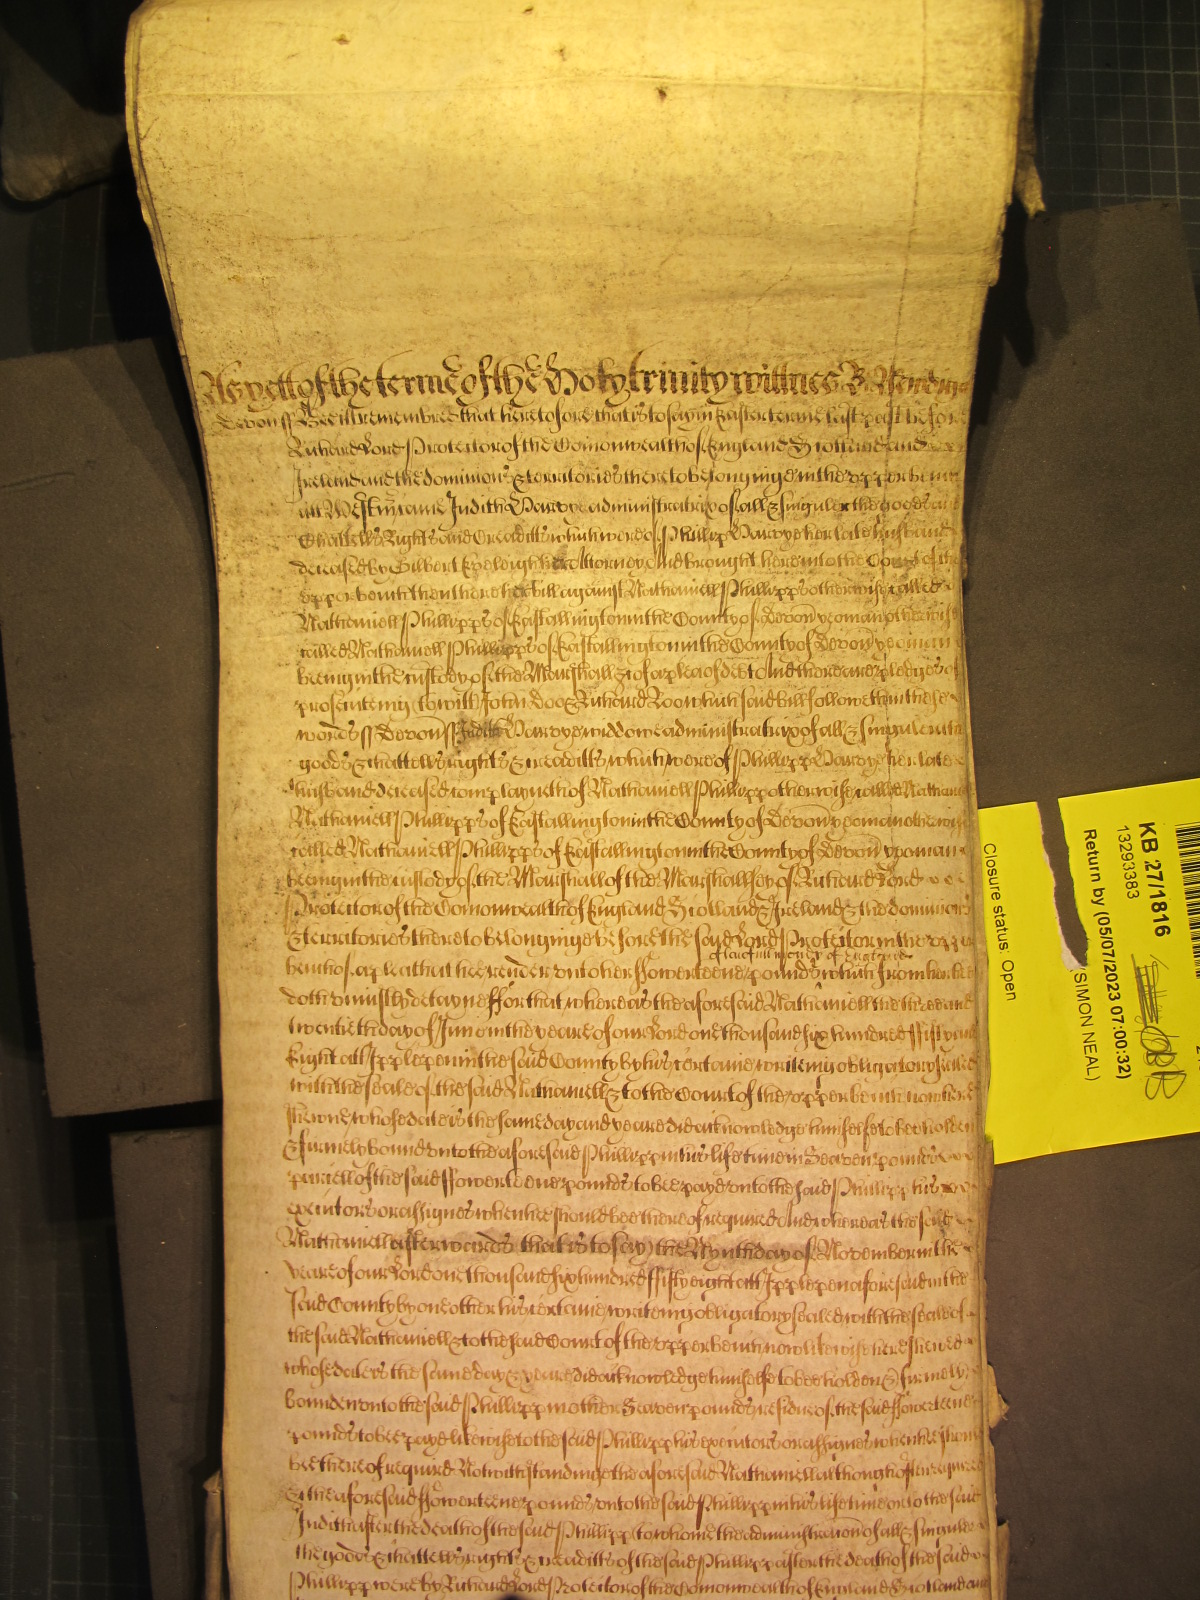 As yett of the terme of the Holy trinity wittnes R:
Devon ss Bee it remembred that heretofore that is to say in Easter terme last past before
Richard Lord Protector of the Comonwealth of England Scotland and
Ireland and the dominions & territories thereto belonginge in the upper bench
att Westm came Judith Harvye administratrix of all & singuler the goods and
Chattells Rights and Creaditts which were of Phillipp Harvye her late husband
deceased by Gilbert Eveleigh her Attorney And brought here into the Court of the
upper bench then there her bill against Nathaniell Phillipps otherwise called
Nathaniell Phillipps of East allington in the County of Devon yeoman otherwise
called Nathaniell Phillipps of East allington in the County of Devon yeoman
beeing in the custody of the Marshall &c of a plea of debt And there are pledges of
prosecuteing (to witt) John Doo & Richard Roo which said bill followeth in these
words ss Devon ss Judith Harvye widdowe administratrix of all & singuler the
goods & chattells rights & creaditts which were of Phillipp Harvye her late
husband deceased complayneth of Nathaniell Phillipp otherwise called
Nathaniell Phillipps of East allington in the County of Devon yeoman otherwise
called Nathaniell Phillipps of East allington in the County of Devon yeoman
beeing in the custody of the Marshall of the Marshallsey of Richard Lord
Protector of the Comonwealth of England Scotland & Ireland & the dominions
& territories thereto belonginge before the said Lord Protector in the upper
of lawfull money of England
bench of a plea that hee render unto her ffowerteene pounds which from her hee
doth uniustly detayne ffor that whereas the aforesaid Nathaniell the three and
twentieth day of June in the yeare of our Lord one thousand six hundred ffifty and
Eight att Ipplepen in the said County by his certaine writeing obligatory sealed
with the seale of the said Nathaniell & to the Court of the upper bench now here
shewne whose date is the same day and yeare did acknowledge himselfe to bee holden
& firmely bound unto the aforesaid Phillipp in his life time in Seaven pounds
parcell of the said ffowerteene pounds to bee payd unto the said Phillipp his
executors or assignes when hee should bee thereof required And whereas the said
Nathaniell afterwards that is to say the Nynth day of November in the
yeare of our Lord one thousand six hundred ffifty eight att Ipplepen aforesaid in the
said County by one other his certaine writeing obligatory sealed with the seale of
the said Nathaniell & to the said Court of the upper bench now likewise here shewed
whose date is the same day & yeare did acknowledge himselfe to bee holden & firmely
bounden unto the said Phillipp in other Seaven pounds residue of the said ffowerteene
pounds to bee payd likewise to the said Phillipp his executors or assignes when hee should
bee thereof requird Notwithstandinge the aforesaid Nathaniell although often required
the aforesaid ffowerteene pounds unto the said Phillipp in his life time or to the said
Judith after the death of the said Phillipp (to whome the administracon of all & singuler
the goods & chattells rights & creaditts of the said Phillipp after the death of the said
Phillipp were by Richard Lord Protector of the Comonwealth of England Scotland and
KB 27/1816
13293383
Return by (05/07/2023 07:00:32)
SIMON NEAL)
Closure status: Open